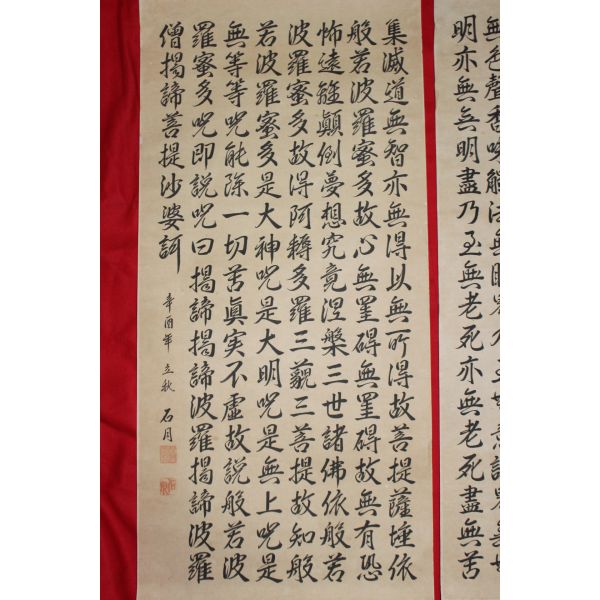 無色聲香味觸法無眼
明亦無無明盡乃至無老死亦無老死盡無苦
集滅道無智亦無得以無所得故菩提薩埵依
般若波羅蜜多故心無罣碍無罣碍故無有恐
怖遠離顛倒夢想究竟涅槃三世諸佛依般若
波羅蜜多故得阿耨多羅三藐三菩提故知般
若波羅蜜多是大神呪是大明呪是無上呪是
無等等呪能除一切苦眞実不虛故説般若波
羅蜜多呪即説呪曰揭諦揭諦波羅揭諦波羅
僧揭諦菩提沙婆訶
辛酉年 立秋 石月